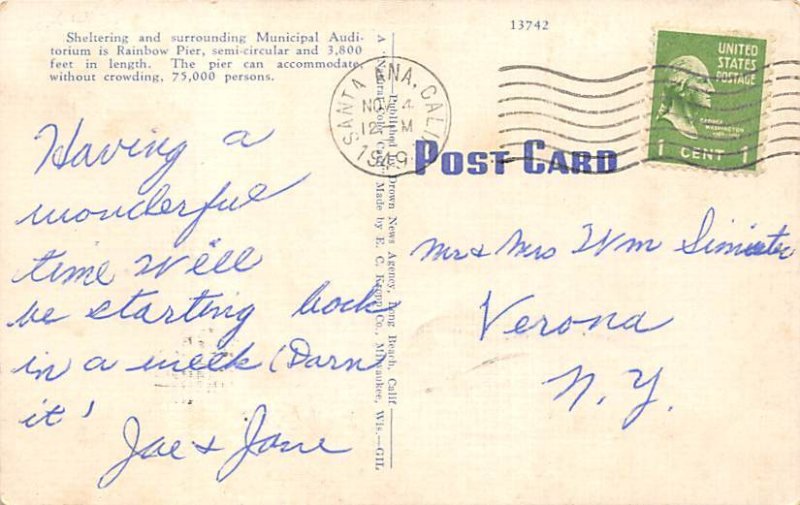 Sheltering and surrounding Municipal Audi-
torium is Rainbow Pier, semi-circular and 3,800
feet in length. The pier can accommodate,
without crowding, 75,000 persons.
Having a
wonderful
time We'll
be starting back
in a week (Darn
it!
Joe & Jane
A "Natural Color Card" Made by E. C. Kropp Co., Milwaukee, Wis.—GIL
Published by Drown News Agency, Long Beach, Calif
13742
SANTA ANA, CALIF
NOV 4
12 M
1949
UNITED
STATES
POSTAGE
GEORGE
WASHINGTON
1 CENT 1
POST CARD
Mr & Mrs Wm
Verona
N. Y.